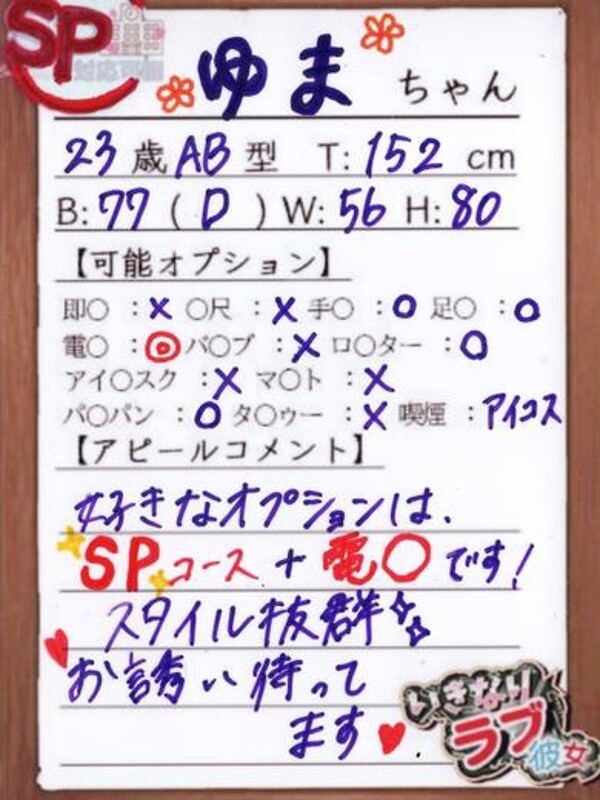 SP
ゆま ちゃん
23 歳 AB 型 T: 152 cm
B: 77 ( D ) W: 56 H: 80
【可能オプション】
即〇 : × 〇尺 : × 手〇 : ○ 足〇 : ○
電〇 : ◎ バ〇ブ : × ロ〇ター : ○
アイ〇スク : × マ〇ト : ×
パ〇パン : ○ タ〇ゥー : × 喫煙 : アイコス
【アピールコメント】
好きなオプションは、
SPコース + 電〇です!
スタイル抜群
お誘い待って
ます♥.
いきなり
ラブ彼女